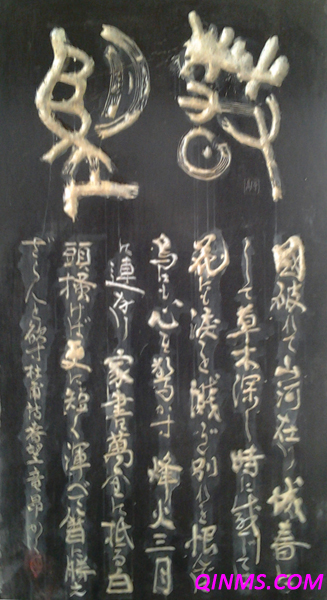 春望
國破れて山河在り城春に
して草木深し時に感じては
花にも涙を濺ぎ別れを恨んでは
鳥にも心を驚かす 烽火三月
に連なり 家書萬金に抵る白
頭掻けば更に短く渾べて簪に勝え
ざらんと欲す杜甫詩春望
QINMS.COM